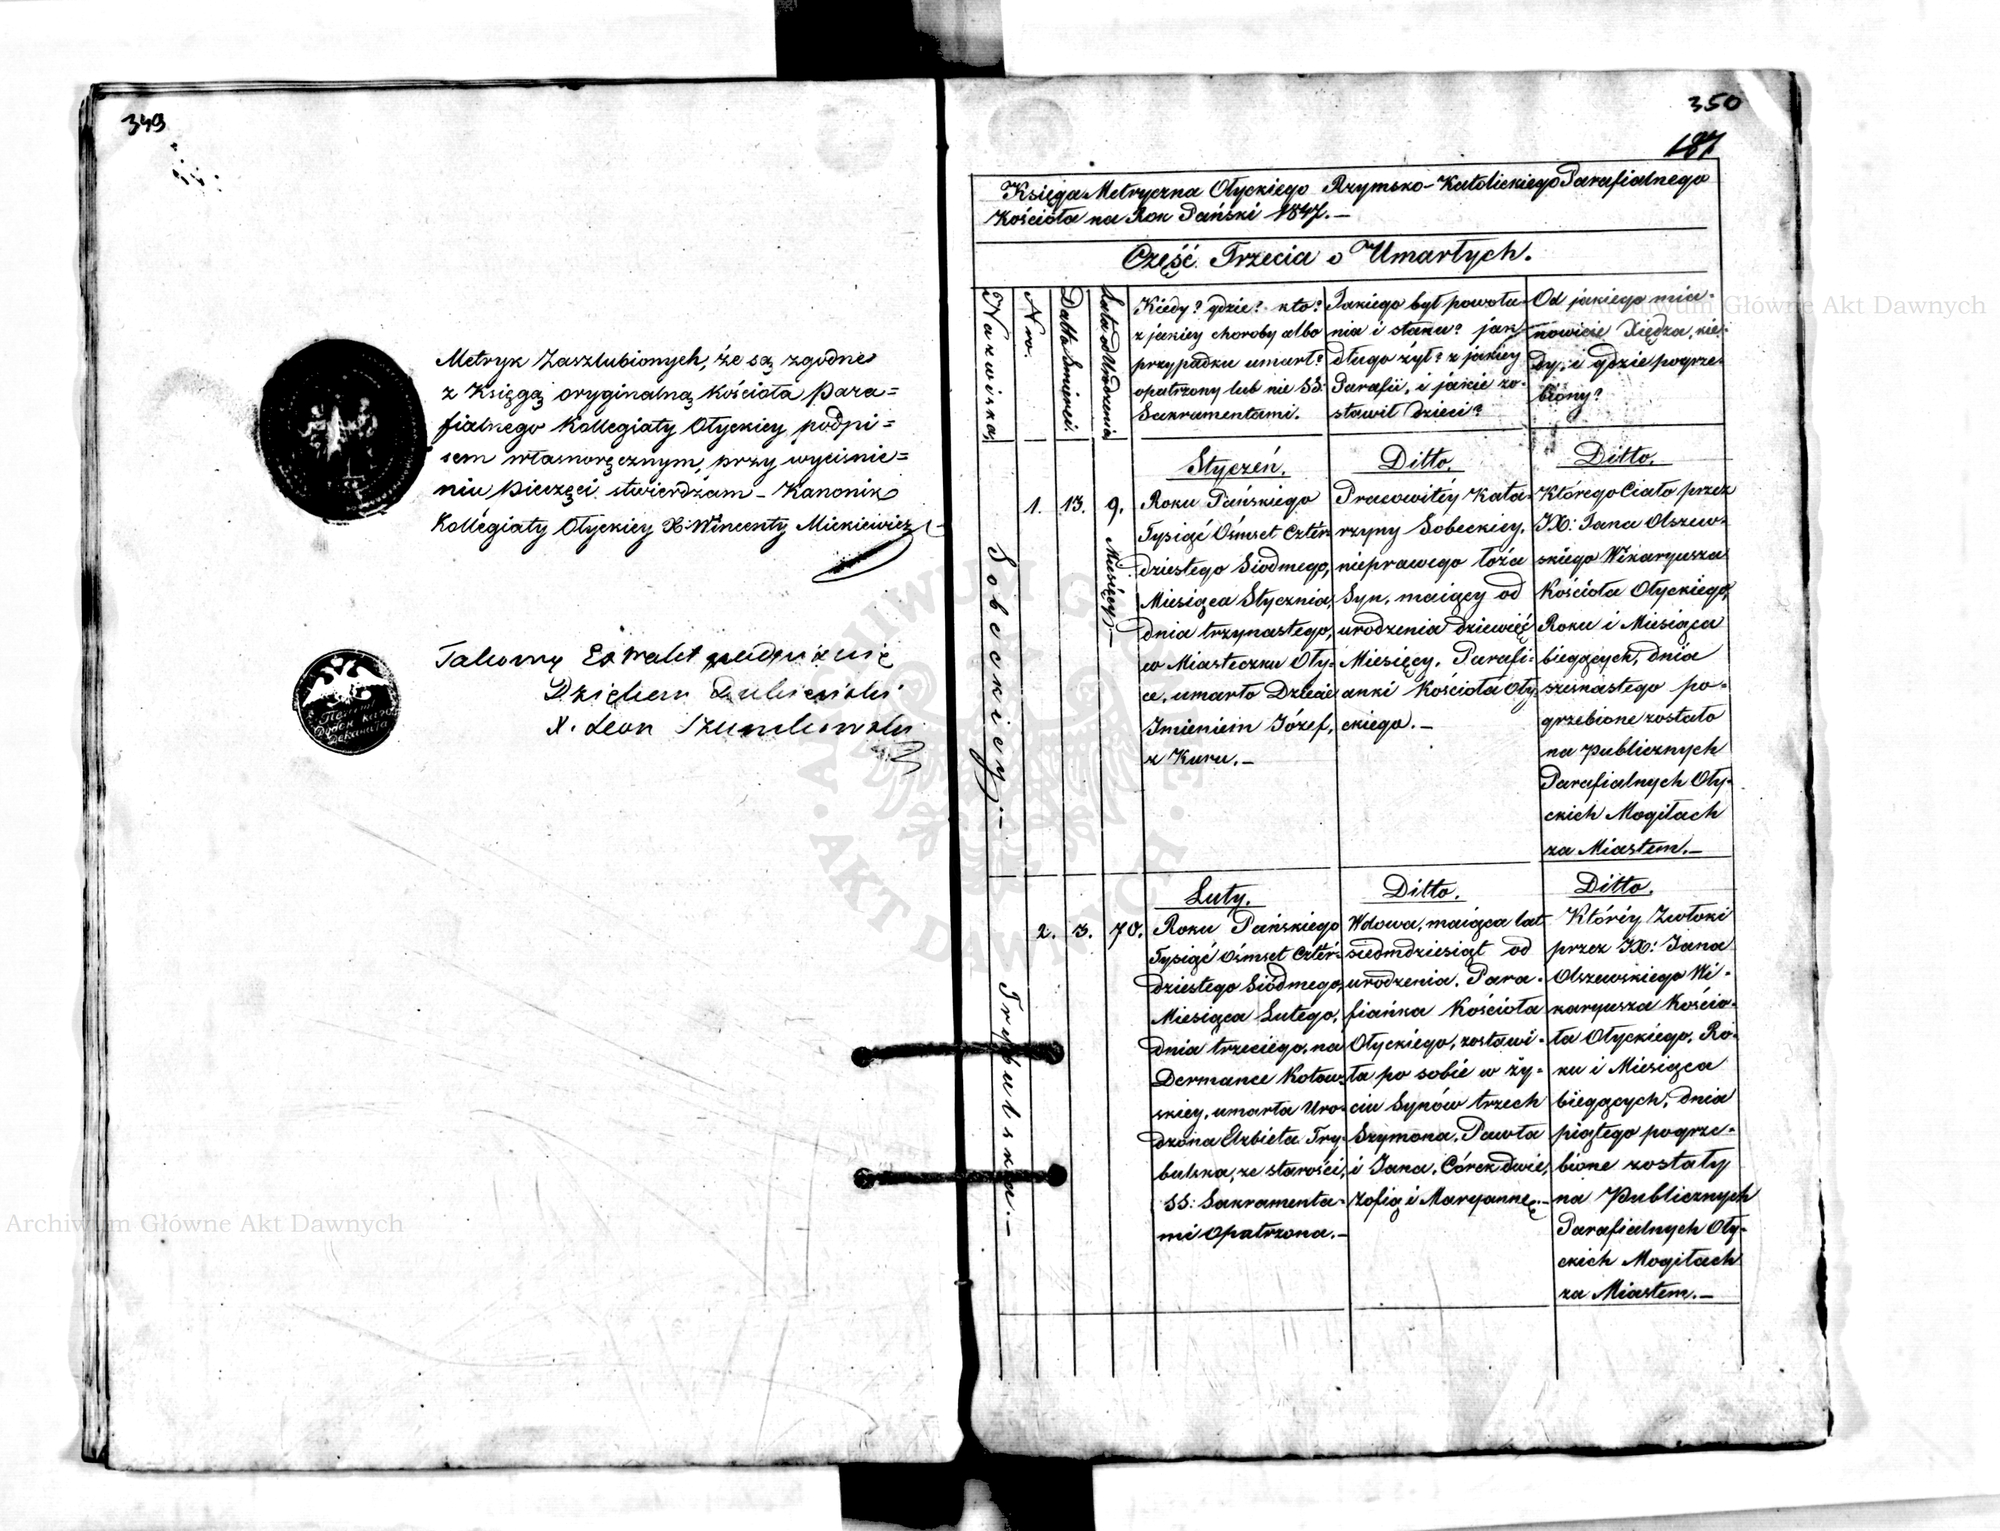 349
Metryk Zaszlubionych, że są zgodne
z Księgą oryginalną Kościoła para=
fialnego Kollegiaty Ołyckiey, podpi=
sem własnoręcznym, przy wyciśnie=
niu pieczęci stwierdzam – Kanonik
Kollegiaty Ołyckiey X: Wincenty Mickiewicz
Takowy Extrakt
Dziekan Dubieński
X. Leon
350
187
Księga Metryczna Ołyckiego Rzymsko-Katolickiego Parafialnego
Kościoła na Rok Pański 1847.–
Część Trzecia o Umarłych.
Nazwiska
Nro.
Datta Śmierci.
Lata od Urodzenia
Kiedy? gdzie? kto?
z jakiey choroby albo
przypadku umarł?
opatrzony lub nie SS:
Sakramentami.
Jakiego był powoła-
nia i stanu? jak
długo żył? z jakiey
Parafii, i jakie zo-
stawił dzieci?
Od jakiego mia-
nowicie Xiędza, kie-
dy, i gdzie pogrze-
biony?
Sobeckiey.–
1.
13.
9.
Miesięcy.–
Styczeń.
Roku Pańskiego
Tysiąć Ośmset Czter
dziestego Siódmego,
Miesiąca Stycznia,
dnia trzynastego,
w Miasteczku Oły-
ce, umarło Dziecie
Imieniem Józef,
z Kuru.–
Ditto.
Pracowitéy Kata-
rzyny Sobeckiey,
nieprawego łoża
Syn, maiący od
urodzenia dziewięć
Miesięcy. Parafi-
anki Kościoła Oły
ckiego.–
Ditto.
Którego Ciało przez
JX: Jana Olszew-
skiego Wikaryusza
Kościoła Ołyckiego,
Roku i Miesiąca
bieągących, dnia
szesnastego po-
grzebione zostało
na Publicznych
Parafialnych Oły-
ckich Mogiłach
za Miastem.–
Trybulska.–
2.
3.
70.
Luty.
Roku Pańskiego
Tysiąć Ośmset Czter-
dziestego Siódmego,
Miesiąca Lutego,
dnia trzeciego, na
Dermance Kotow-
skiey, umarła Uro-
dzona Elzbieta Try-
bulska, ze starości,
SS: Sakramenta-
mi opatrzona.–
Ditto.
Wdowa, maiąca lat
siedmdziesiąt od
urodzenia. Para-
fianka Kościoła
Ołyckiego, zostawi-
ła po sobie w ży-
ciu Synów trzech
Szymona, Pawła
i Jana, Córek dwie,
Zofią i Maryannę.–
Ditto.
Któréy Zwłoki
przez JX: Jana
Olszewskiego Wi-
karyusza Kościo-
ła Ołyckiego, Ro-
ku i Miesiąca
bieągących, dnia
piątego pogrze-
bione zostały
na Publicznych
Parafialnych Oły-
ckich Mogiłach
za Miastem.–
Archiwum Główne Akt Dawnych
Archiwum Główne Akt Dawnych